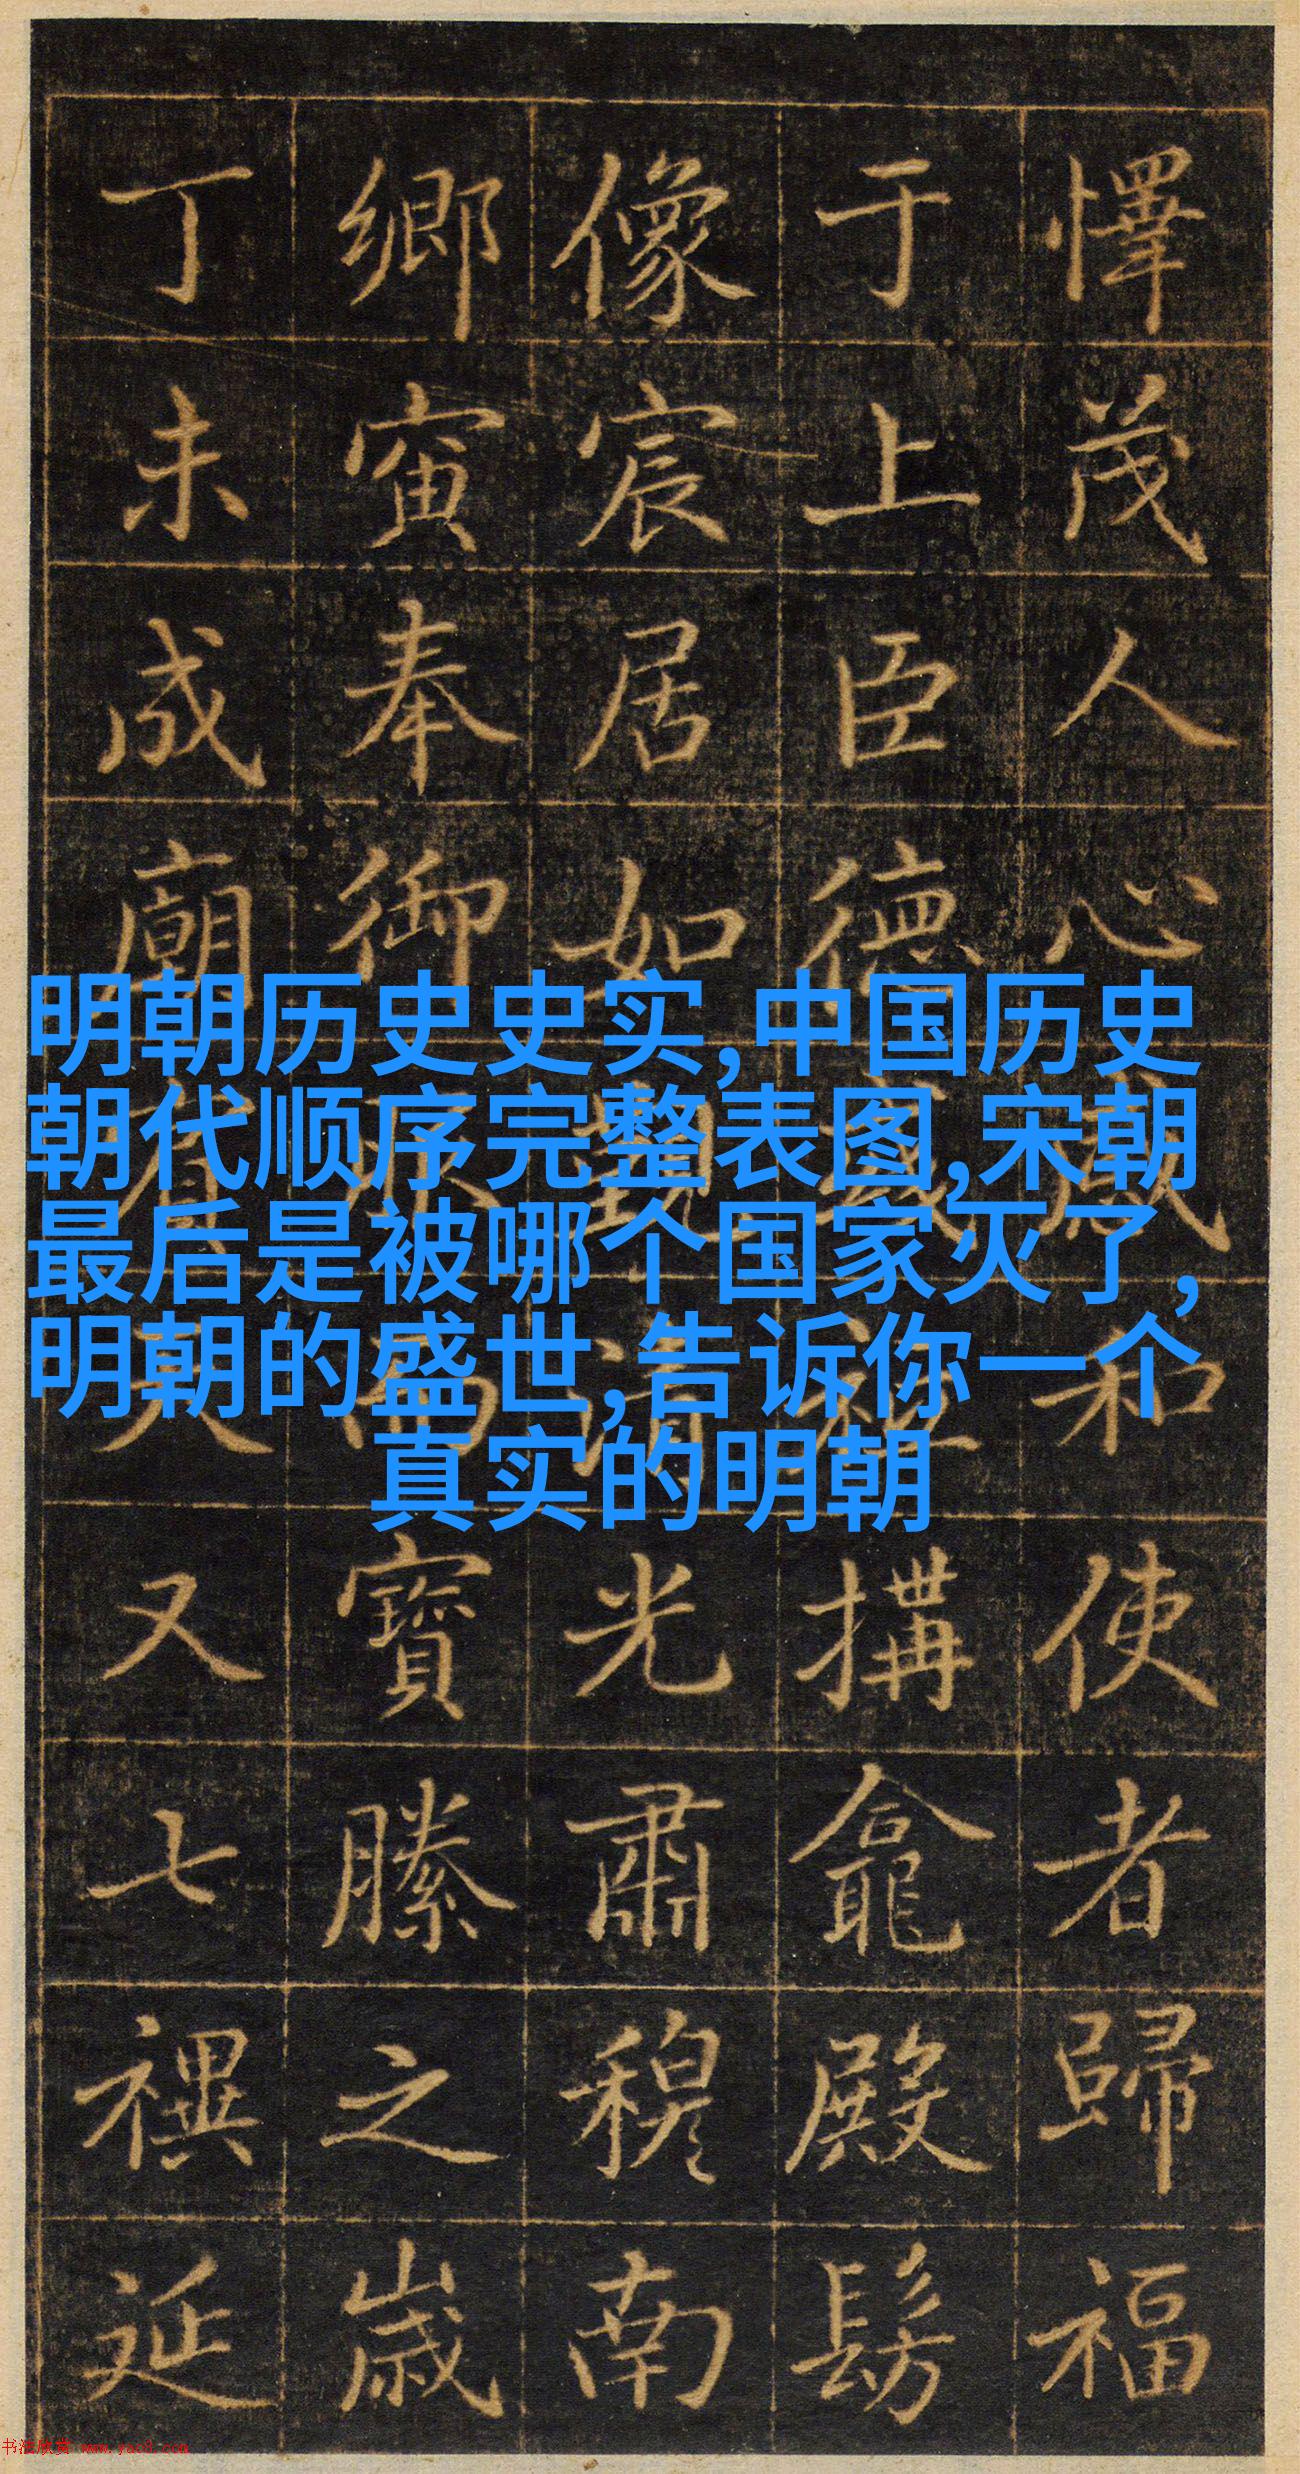 懌茂人心和使者歸福
于上臣德搆龕殿髣
像宸居如清光肅穆南
鄉寅奉御而寶縢之歲
丁未成廟又七禩延
明朝历史史实,中国历史
朝代顺序完整表图,宋朝
最后是被哪个国家灭了,
明朝的盛世,告诉你一个
真实的明朝
书法欣赏 www.yac8.com